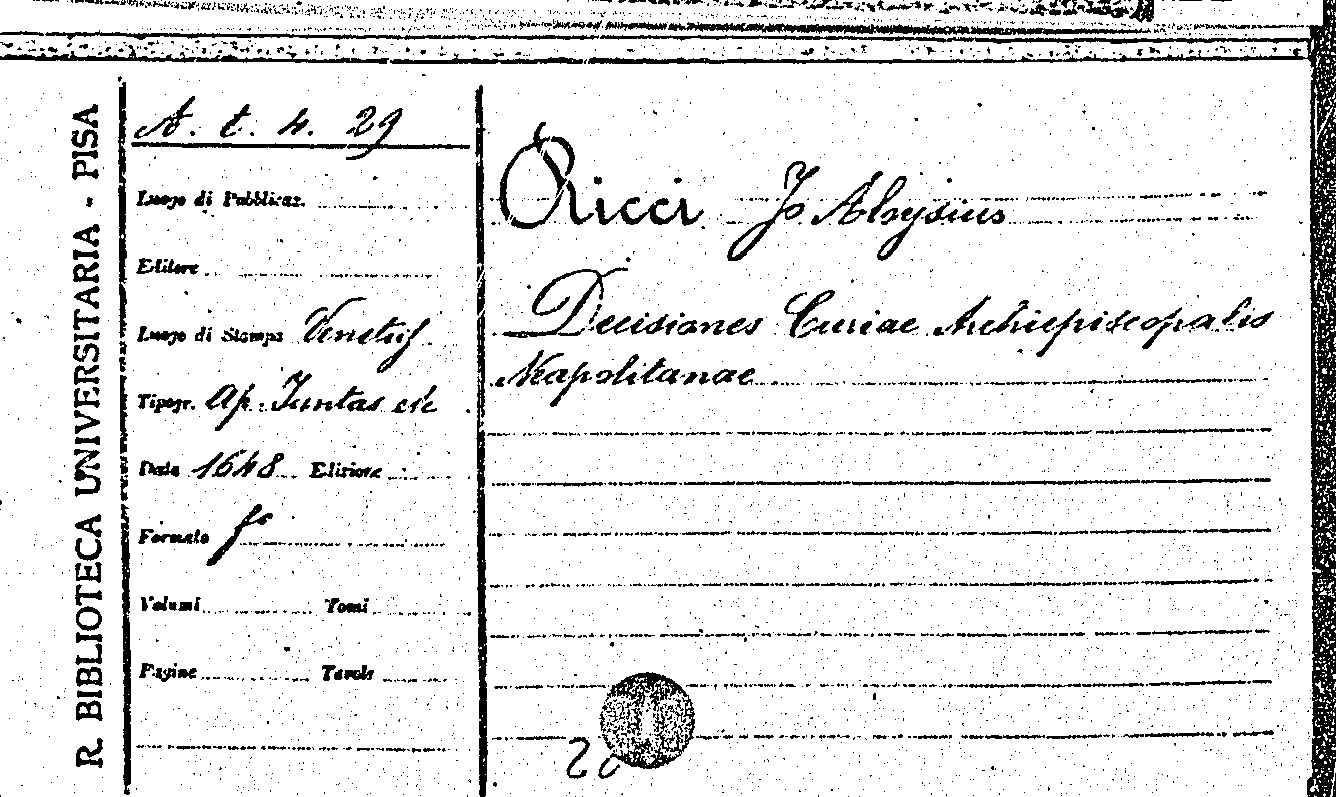 R. BIBLIOTECA UNIVERSITARIA - PISA
A. t. 4. 29
Luogo di Pubblicaz.
Editore
Luogo di Stampa Venetijs
Tipogr. ap. Juntas etc
Data 1648 Edizione
Formato fº
Volumi Tomi
Pagine Tavole
Ricci Jo Aloysius
Decisiones Curiae Archiepiscopalis
Neapolitanae